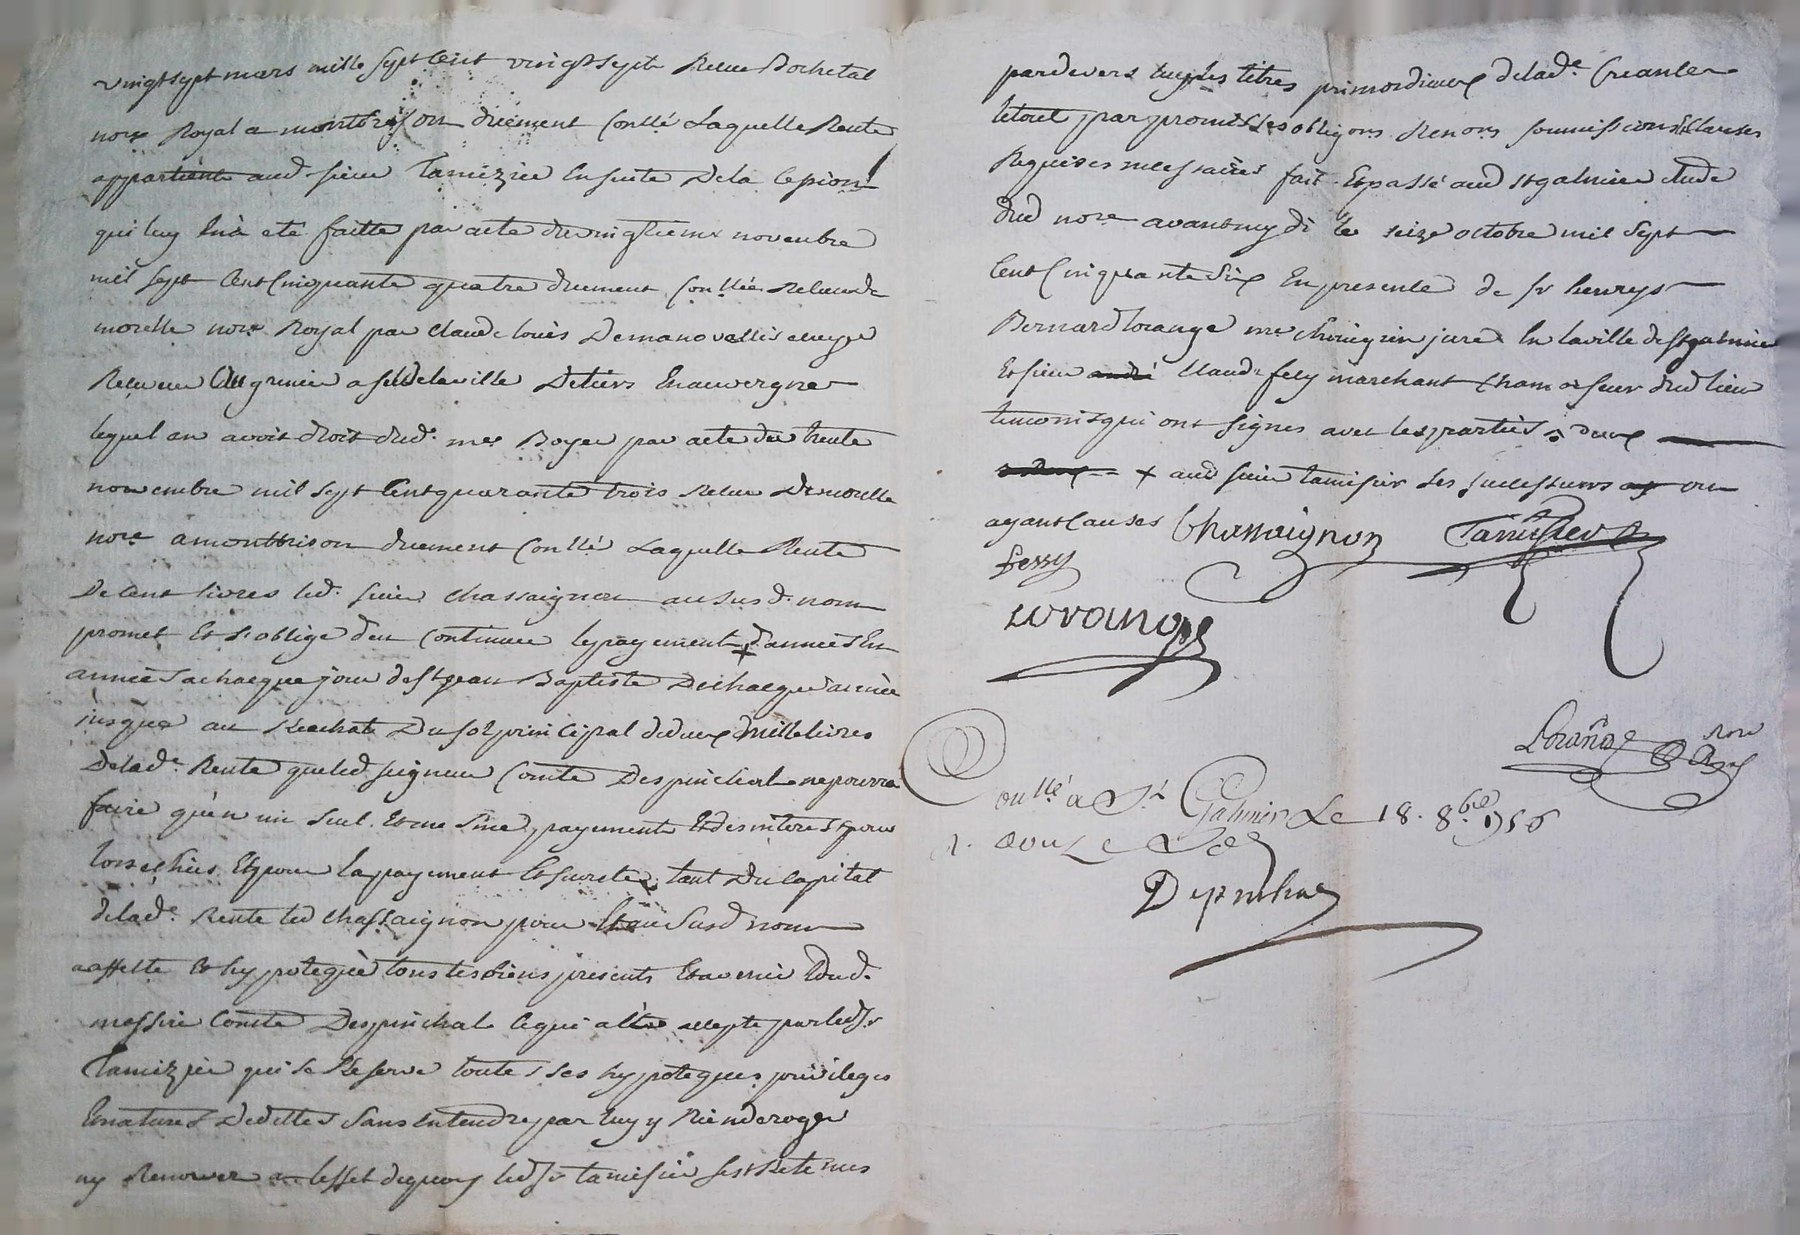 vingt sept mars mille sept cent vingt sept Recue Bochetal
nore Royal a montbrison duement Conllé Laquelle Rente
appartiente aud. sieur Tamizier En suite de la Cession
qui luy En a eté faitte par acte du vingtieme novembre
mil sept Cent Cinquante quatre duement Conllée Recue de
morelle nore Royal par Claude Louis Demano
Receveur Au grenier a sel de la ville De tiers En auvergne
lequel en avoit droit dud. me Boyer par acte du trente
novembre mil sept Cent quarante trois Recue De morelle
nore a montbrison duement Conllé Laquelle Rente
De Cent livres led. sieur Chassaignon au susd. nom
promet Et s'oblige d'en Continuer le payement + d'années En
années a chaeque jour de st jean Baptiste De chaeque année
jusques au Reachat Du sol principal de deux mille livres
De lade. Rente que led. seigneur Comte Despinchal ne pourra
faire qu'en un seul Et me sme payement Et des interest pour
lors echus Et pour le payement Et sureté tant Du Capital
de lade. Rente led Chassaignon pour Et au Susd nom
a affecté Et hypotequé tous les biens presents Et avenir Dud.
messire Comte Despinchal Ce qui a eté accepté par led sr
Tamizier qui se Reserve toutes ses hypoteques privileges
Et natures De dettes sans entendre par luy y Rien deroger
ny Renover a leffet de quoy led sr tamisier sest Retenus
par devers luy les titres primordieux de lade. Creance
le tout par promis ses obligons Renons soumissions Et Clauses
Requises necessaires fait Et passé aud st galmier Etude
dud nore avant mydi le seize octobre mil sept
Cent Cinquante Six En presente de sr henrys
Bernard Lorange me Chirugien juré En la ville de st galmier
Et sieur andré Claude fesy marchant Chamoiseur dud lieu
temoins qui ont signes avec les parties deux
+ aud sieur tamisier ses successeurs ou
ayant Causes Chassaignon Tamisier
fessy
Lorange
Lorange Nore Royal
Conllé a St. Galmier Le 18. 8bre 1756
R. douze s.
Depinchal